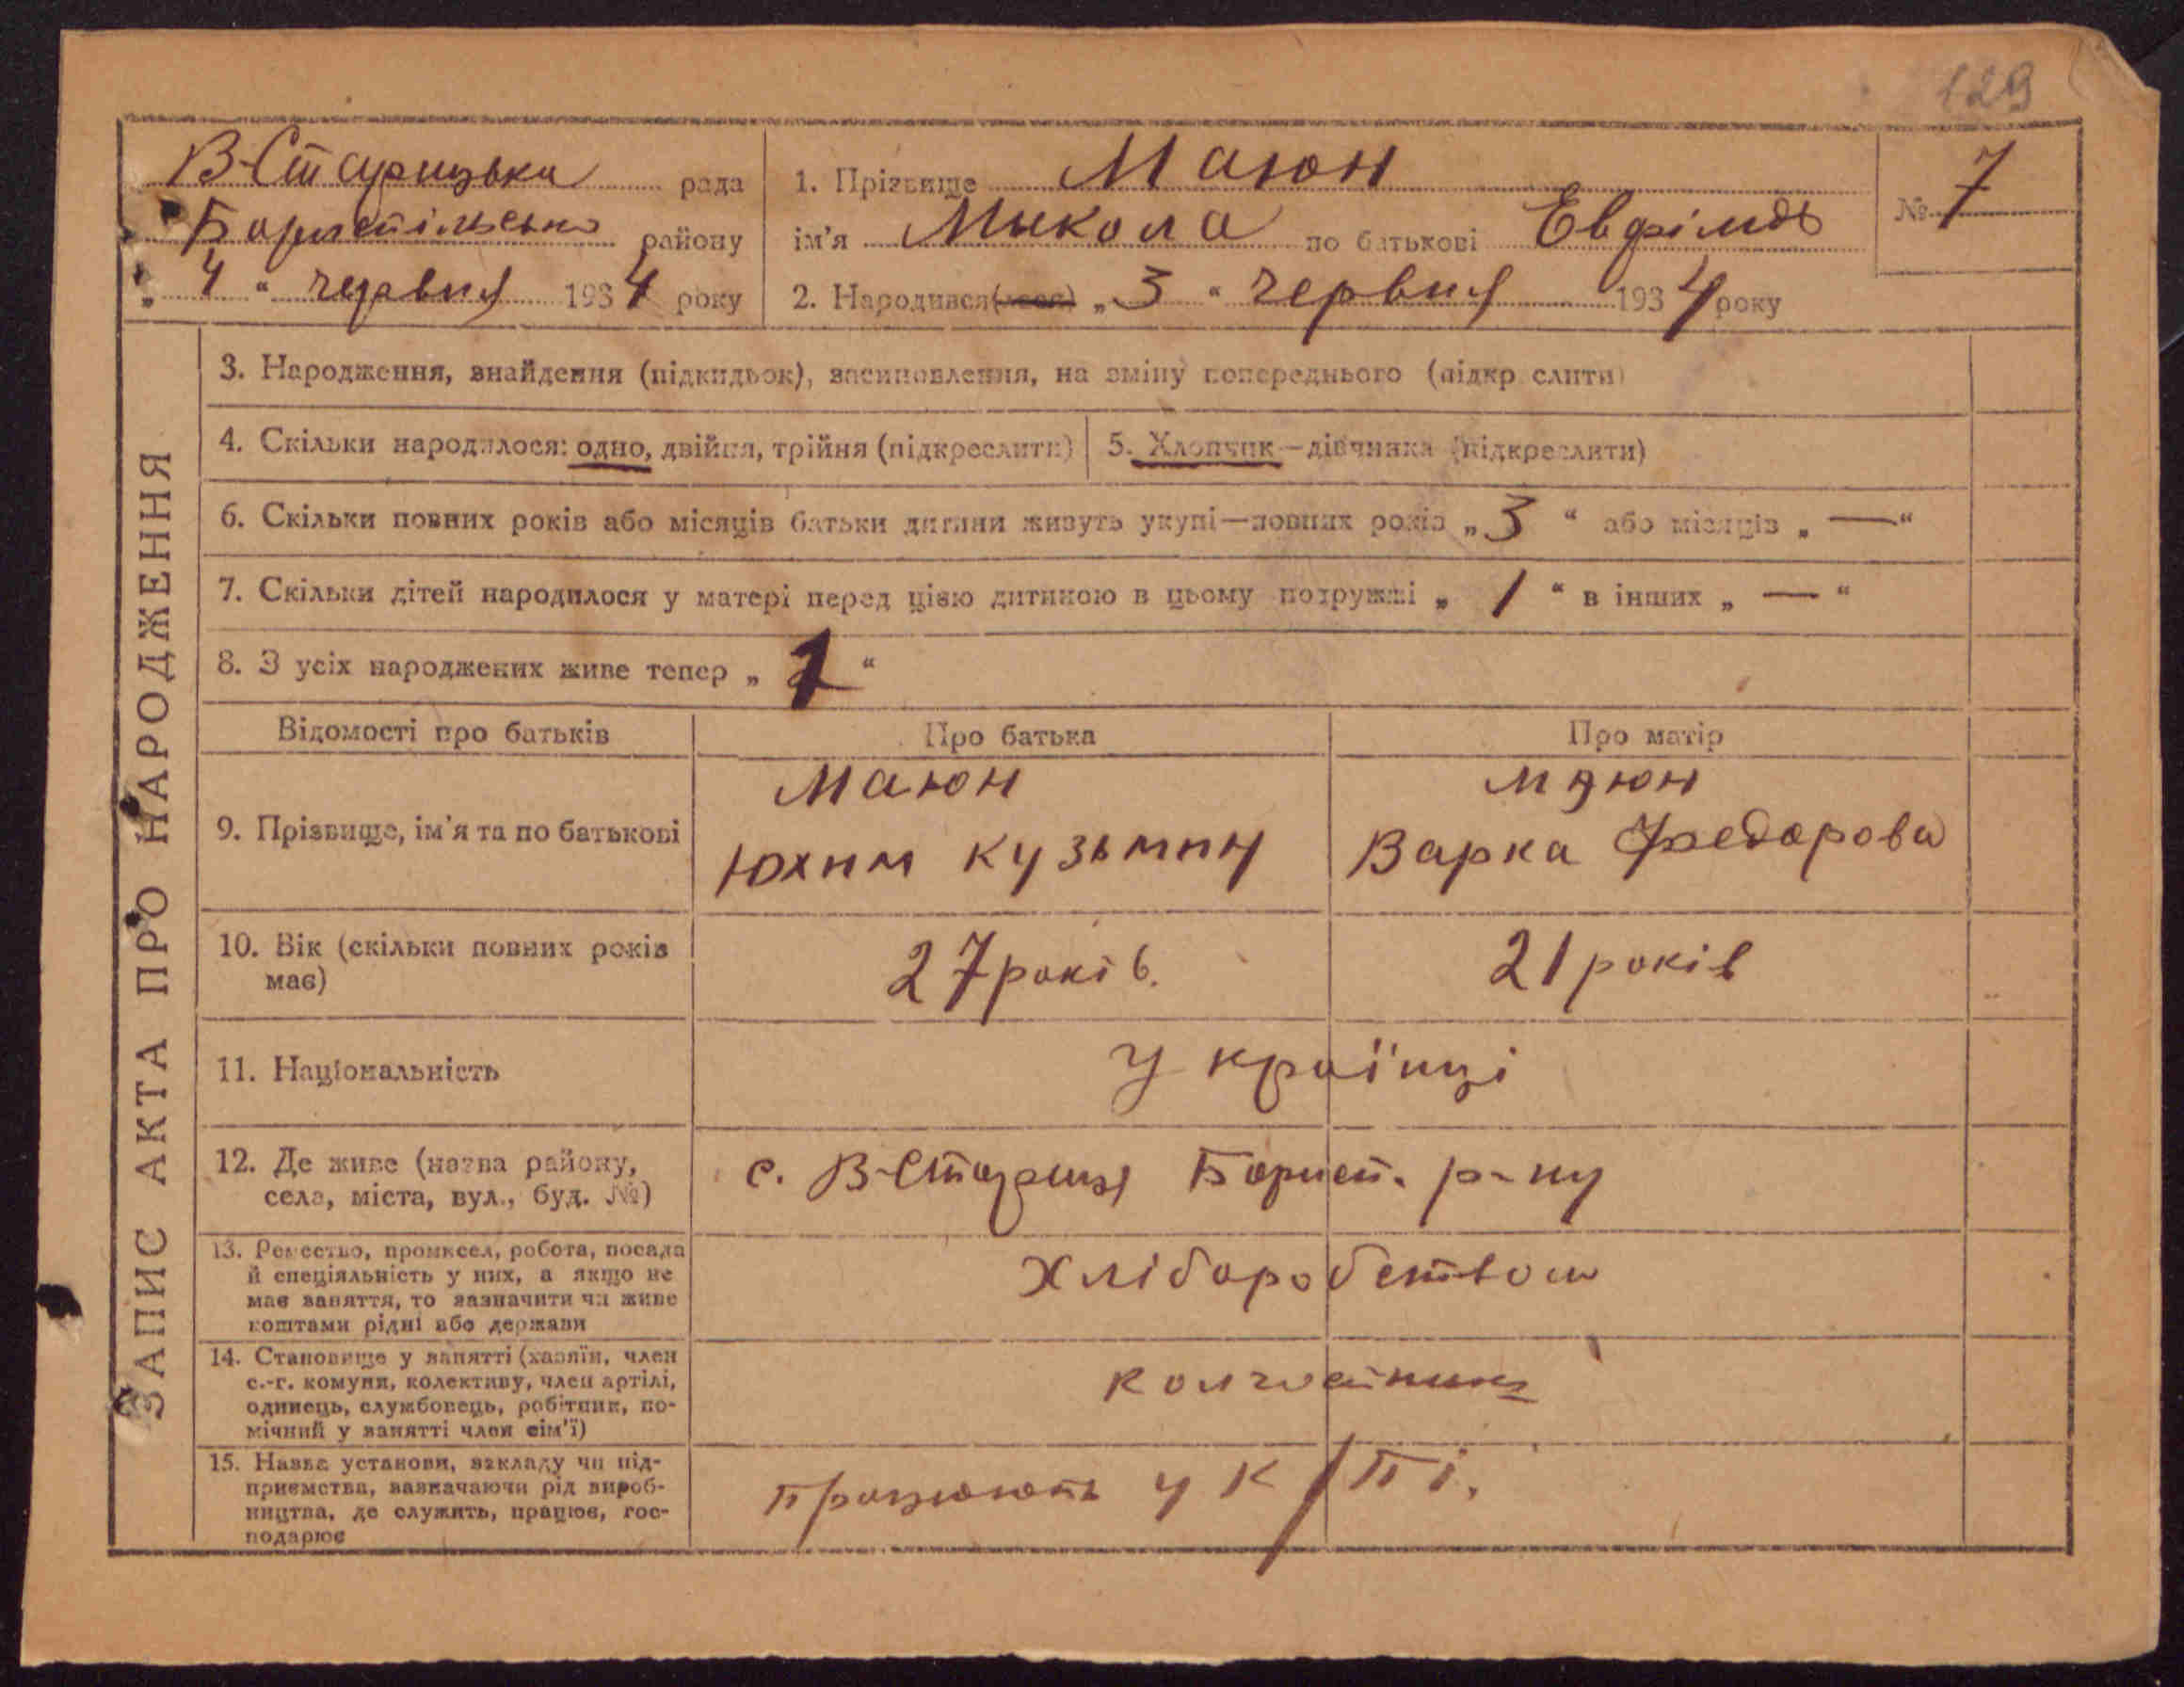 129
В-Старицька рада
Бориспільсько району
„ 4 “ червня 1934 року
1. Прізвище Маюн
ім'я Микола по батькові
2. Народився(лася) „ 3 “ червня 1934 року
№ 7
ЗАПИС АКТА ПРО НАРОДЖЕННЯ
3. Народження, знайдення (підкидьок), засиновлення, на зміну попереднього (підкр слити)
4. Скільки народилося: одно, двійня, трійня (підкреслити)
5. Хлопчик—дівчинка (підкреслити)
6. Скільки повних років або місяців батьки дитини живуть укупі—повних років „ 3 “ або місяців „ — “
7. Скільки дітей народилося у матері перед цією дитиною в цьому подружжі „ 1 “ в інших „ — “
8. З усіх народжених живе тепер „ “
Відомості про батьків
Про батька
Про матір
9. Прізвище, ім'я та по батькові
Маюн
Юхим Кузьмич
Маюн
Варка Федорова
10. Вік (скільки повних років
має)
27 років.
21 років
11. Національність
Українці
12. Де живе (назва району,
села, міста, вул., буд. №)
с. В-Стариця Борисп. р-ну
13. Ремество, промисел, робота, посада
й спеціяльність у них, а якщо не
має заняття, то зазначити чи живе
коштами рідні або держави
Хліборобством
14. Становище у занятті (хазяїн, член
с.-г. комуни, колективу, член артілі,
одинець, службовець, робітник, по-
мічний у занятті член сім'ї)
колгоспники
15. Назва установи, закладу чи під-
приємства, зазначаючи рід вироб-
ництва, де служить, працює, гос-
подарює
Працюють у к/пі.